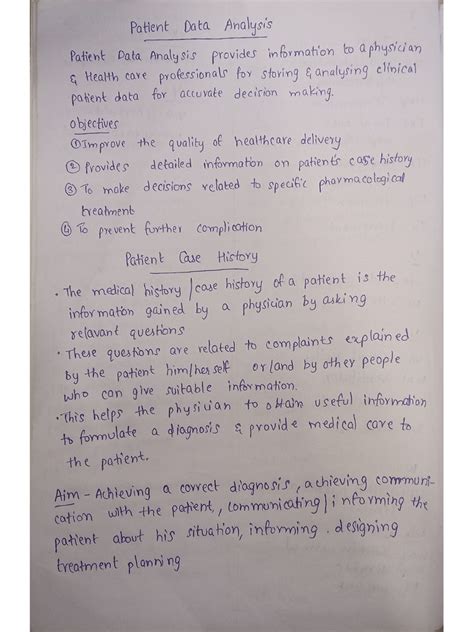 Patient Data Analysis
Patient Data Analysis provides information to a physician
& Health care professionals for storing & analysing clinical
patient data for accurate decision making.
Objectives
① Improve the quality of healthcare delivery
② Provides detailed information on patients case history
③ To make decisions related to specific pharmacological
treatment
④ To prevent further complication
Patient Case History
• The medical history / case history of a patient is the
information gained by a physician by asking
relavant questions
• These questions are related to complaints explained
by the patient him/her self or/and by other people
who can give suitable information.
• This helps the physician to obtain useful information
to formulate a diagnosis & provide medical care to
the patient.
Aim - Achieving a correct diagnosis, achieving communi-
cation with the patient, communicating / informing the
patient about his situation, informing. designing
treatment planning